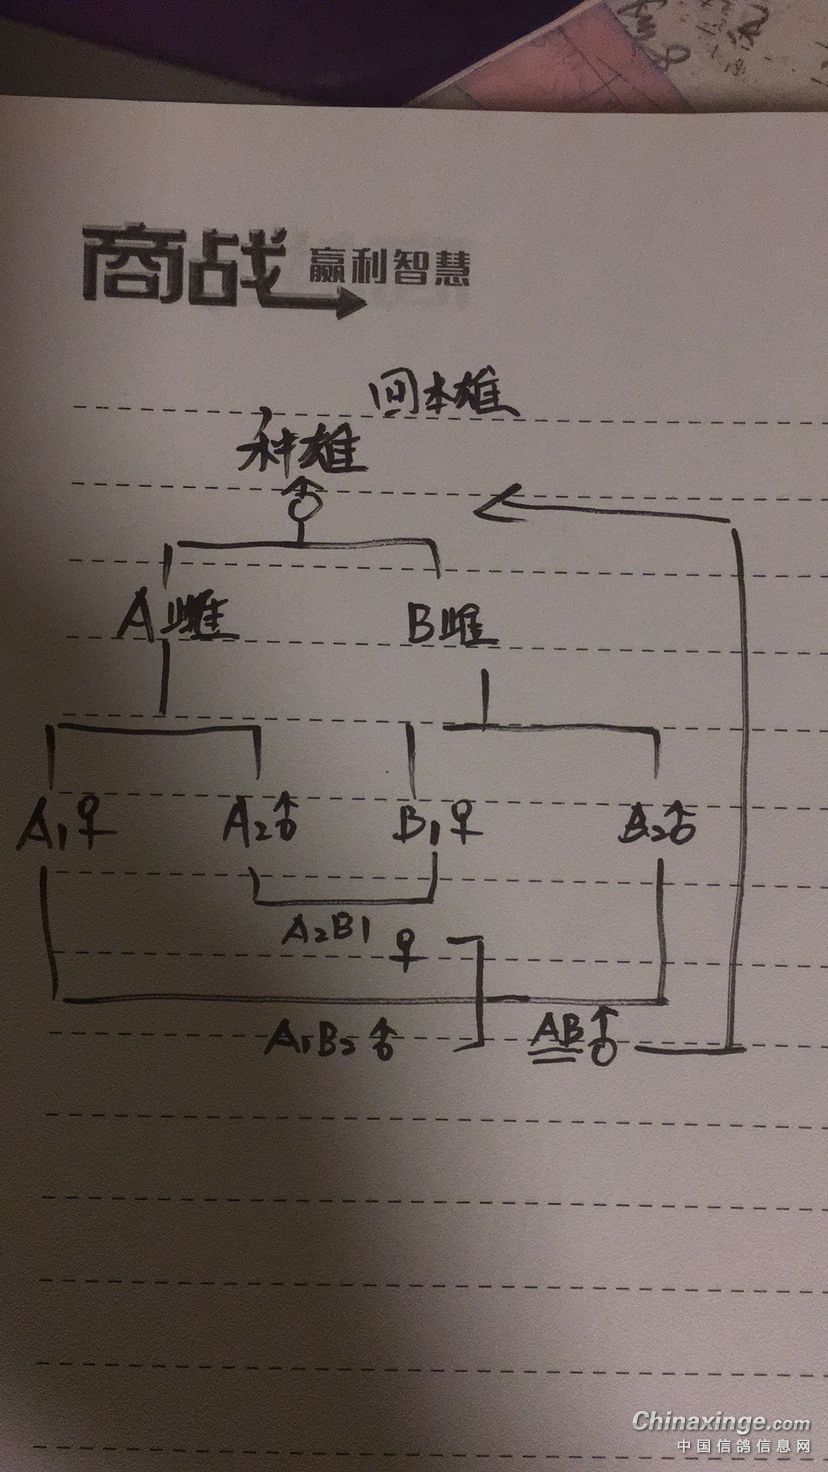 商战 赢利智慧
回本雄
种雄
♂
A雌 B雌
A1♀ A2♂ B1♀ B2♂
A2B1 ♀
A1B2♂ AB♂
Chinaxinge.com
中国信鸽信息网